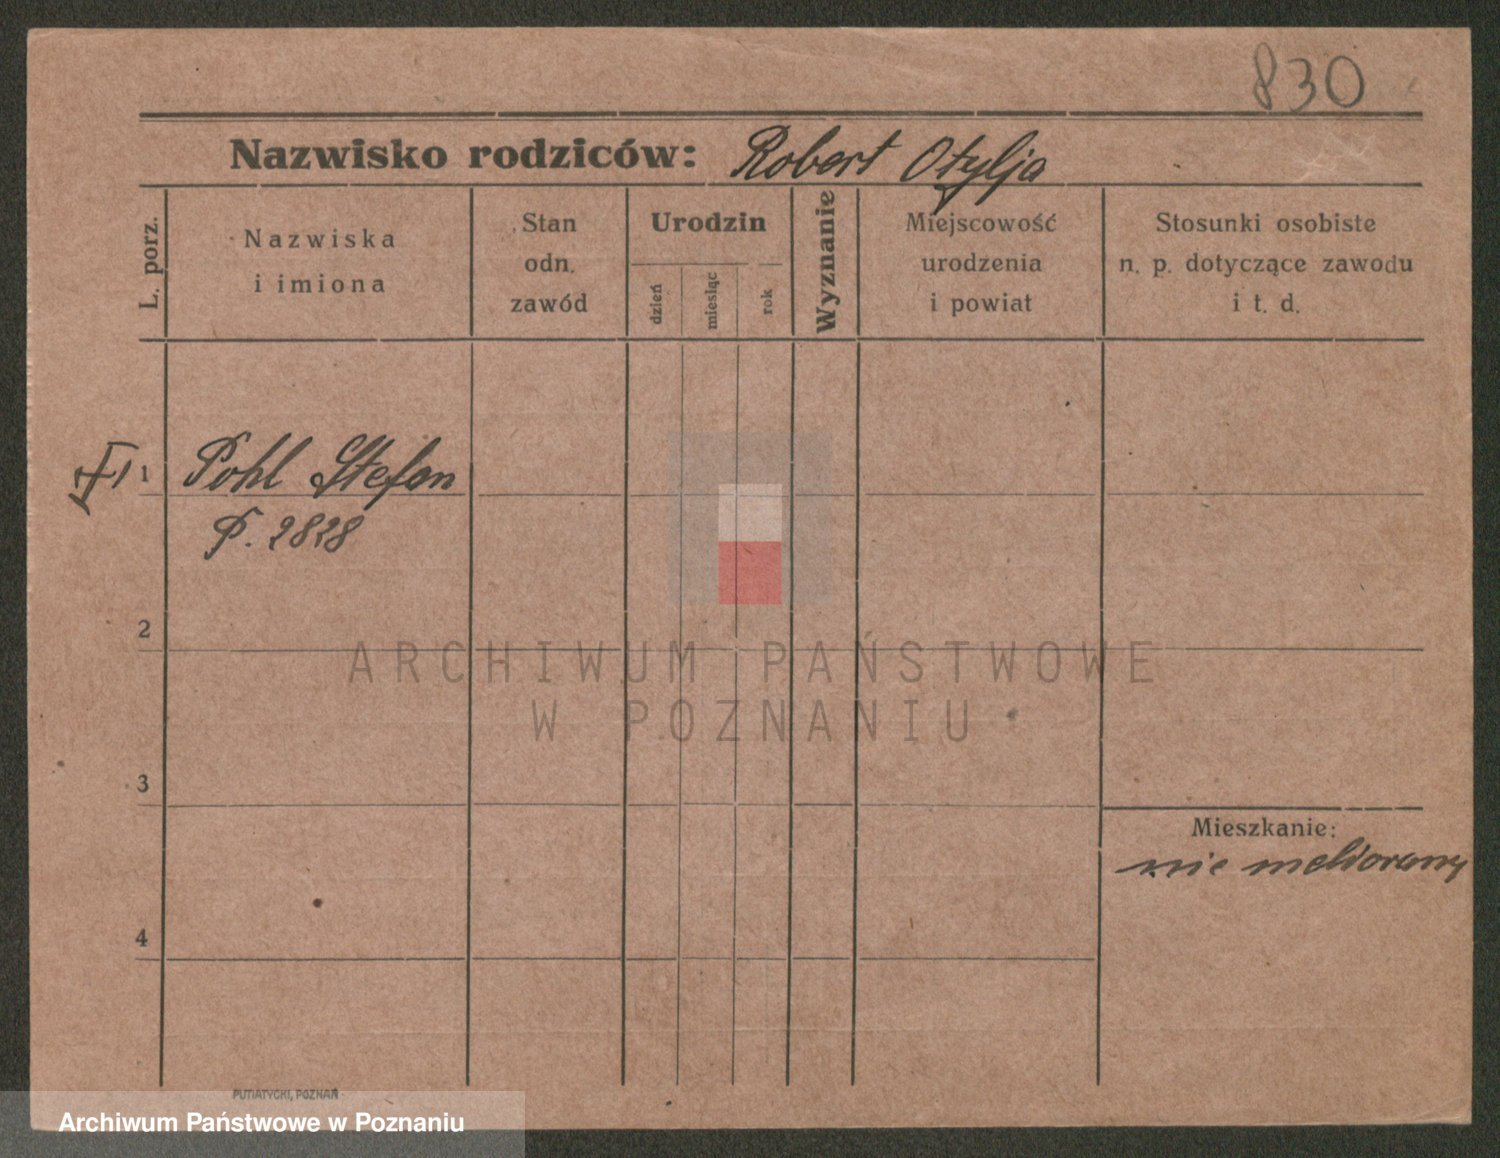 830
Nazwisko rodziców: Robert Otylja
L. porz.
Nazwiska
i imiona
Stan
odn.
zawód
Urodzin
dzień
miesiąc
rok
Wyznanie
Miejscowość
urodzenia
i powiat
Stosunki osobiste
n. p. dotyczące zawodu
i t. d.
1 Pohl Stefan
P. 2828
2
ARCHIWUM PAŃSTWOWE
W POZNANIU
3
Mieszkanie:
nie meldowany
4
PUTIATYCKI, POZNAŃ
Archiwum Państwowe w Poznaniu